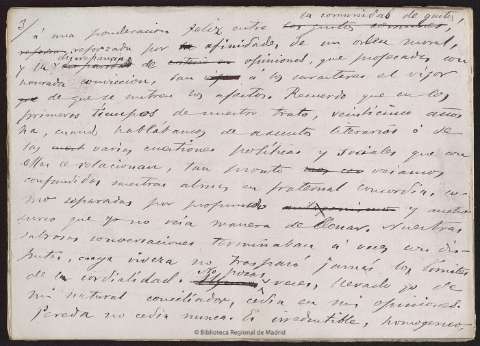 3/
la comunidad de gustos,
á una ponderacion feliz entre los gustos
reforzada por afinidades de un orden moral,
discrepancia
y la de opinional, que profesadas con
honrada conviccion, dan á los caracteres el vigor
de que se nutren los afectos. Recuerdo que en los
primeros tiempos de nuestro trato, veinticinco años
ha, cuando hablábamos de asuntos literarios ó de
las varias cuestiones políticas y sociales que con
ellas se relacionan, tan pronto veíamos
confundidas nuestras almas en fraternal concordia, co-
mo separadas por profundo y ancho
surco que yo no veía manera de llenar. Nuestras
sabrosas conversaciones terminaban á veces con dis-
puta, cuya viveza no traspasó jamás los límites
de la cordialidad. No pocas veces, llevado yo de
mi natural conciliador, cedía en mis opiniones.
Pereda no cedía nunca. Es irreductible, homogéneo,
© Biblioteca Regional de Madrid